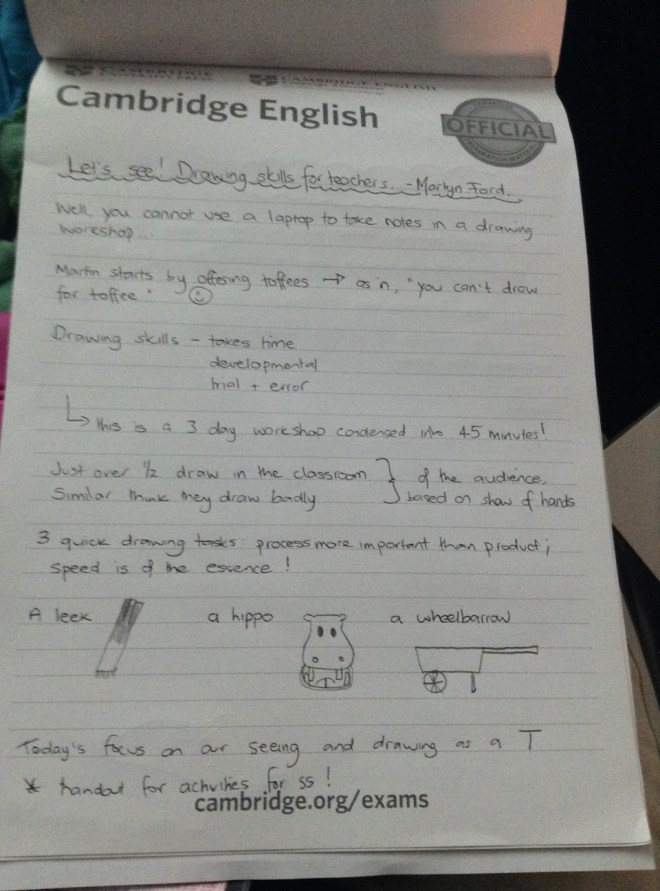 CAMBRIDGE ENGLISH
Cambridge English
OFFICIAL
PREPARATION MATERIAL
Let's see! Drawing skills for teachers. - Martyn Ford.
Well, you cannot use a laptop to take notes in a drawing
workshop...
Martin starts by offering toffees → as in, "you can't draw
for toffee"
Drawing skills - takes time
developmental
trial + error
this is a 3 day workshop condensed into 45 minutes!
Just over 1/2 draw in the classroom } of the audience,
Similar think they draw badly based on show of hands
3 quick drawing tasks: process more important than product;
speed is of the essence!
A leek a hippo a wheelbarrow
Today's focus on our seeing and drawing as a T
* handout for activities for ss!
cambridge.org/exams